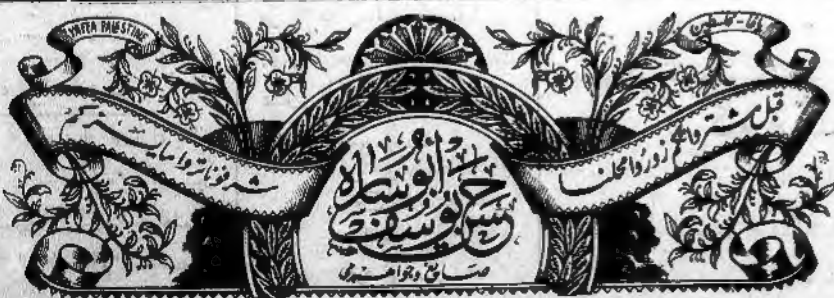 YAFFA PALESTINE
يافا - فلسطين
قبل مشترواكم زوروا محلنا
شرفونا تروا ما يسركم
حسن يوسف أبو ساره
صائغ وجواهرجي